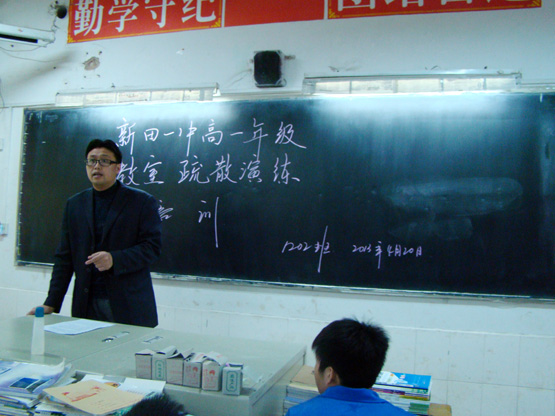 勤学守纪
新田一中高一年级
教室疏散演练
培训
1202班 2013年4月20日